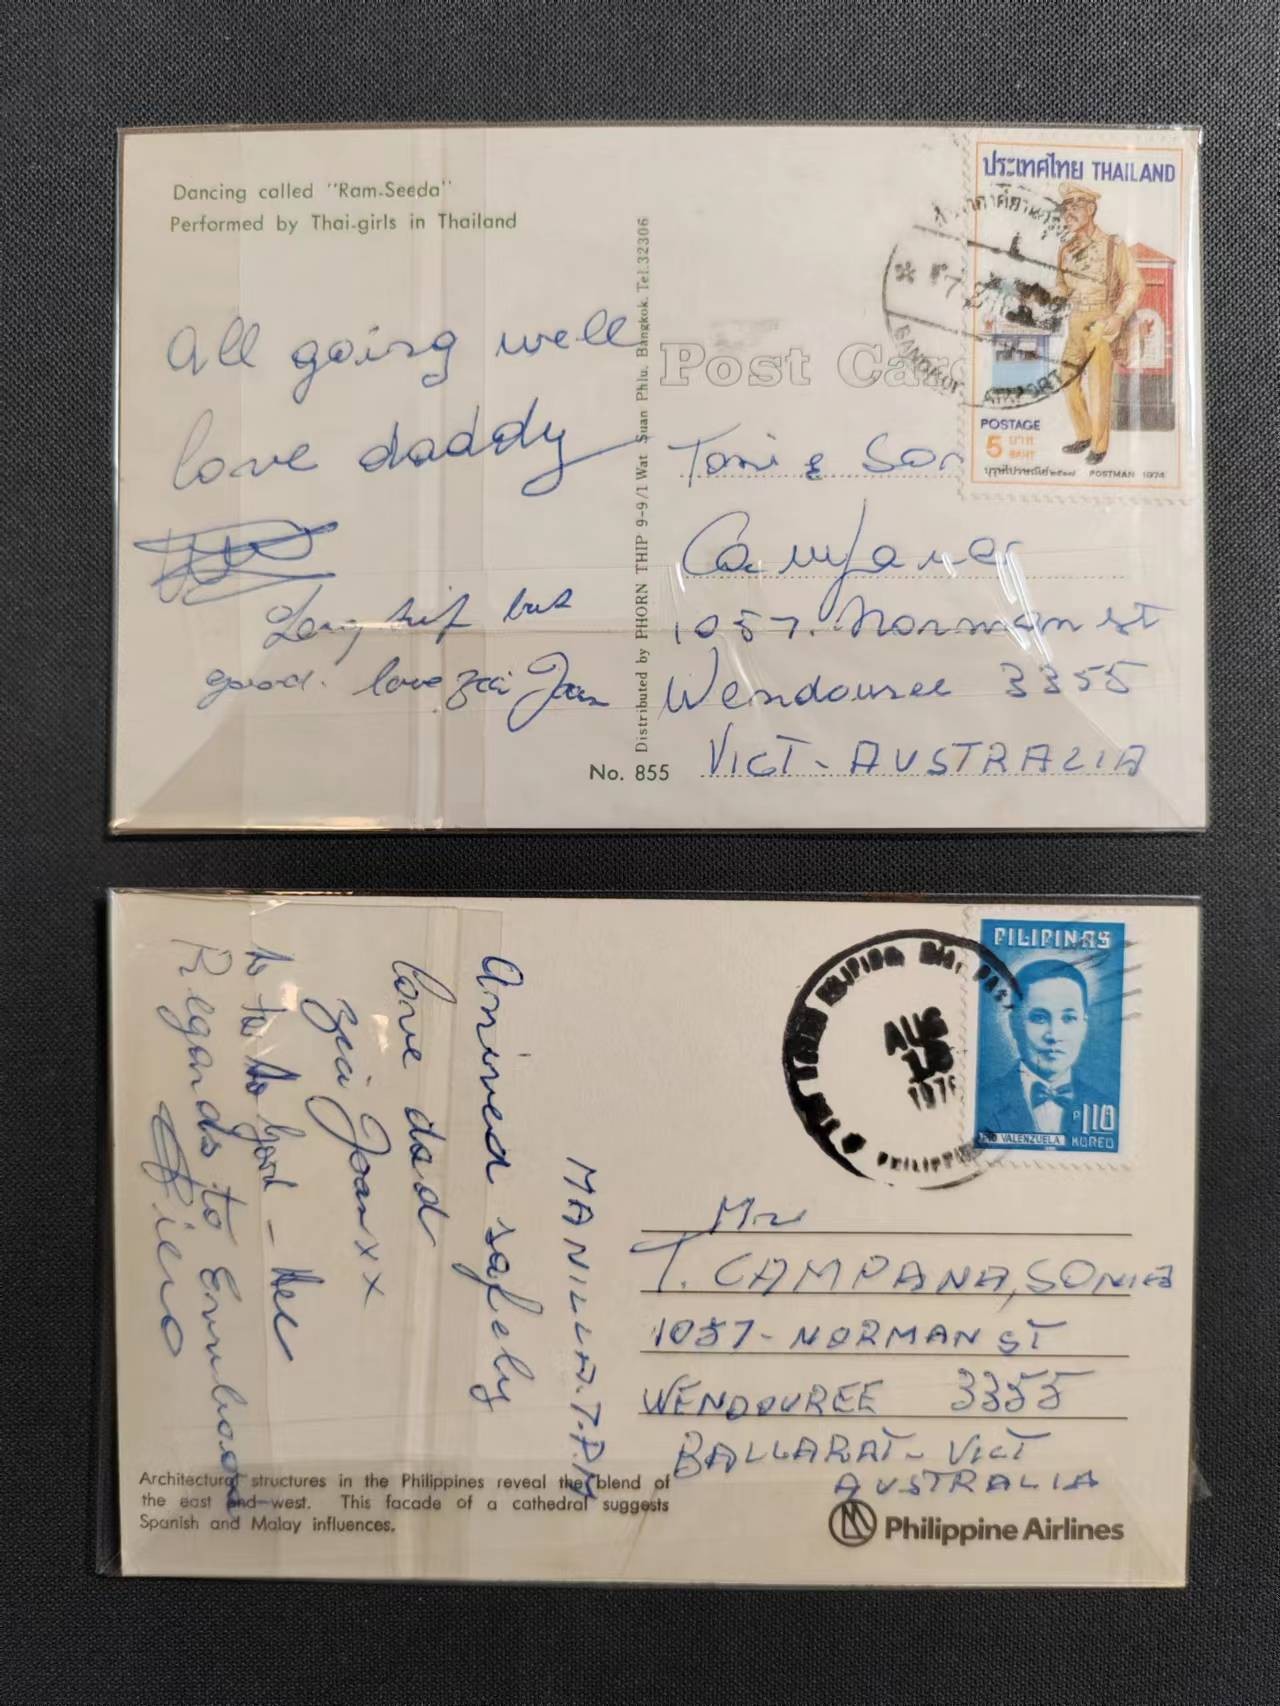 Dancing called "Ram-Seeda"
Performed by Thai-girls in Thailand
All going well
love daddy
Long trip but
good. love zia Joan
Distributed by PHORN THIP 9-9/1 Wat Suan Phlu. Bangkok. Tel.32306
No. 855
Post Card
ประเทศไทย THAILAND
POSTAGE
5 บาท
BAHT
บุรุษไปรษณีย์ ๒๕๑๗ POSTMAN 1974
BANGKOK AIRPORT
Toni & Son
Campana
1057. Norman st
Wendouree 3355
VICT - AUSTRALIA
MANILLA.
Arrived safely
love dad
zia Joan x x
Regards to
Architectural structures in the Philippines reveal the blend of
the east and west. This facade of a cathedral suggests
Spanish and Malay influences.
PILIPINAS
P110
VALENZUELA KOREO
AUG
18
PHILIPPINES
T. CAMPANA, SONIA
1057 - NORMAN ST
WENDOUREE 3355
BALLARAT - VICT
AUSTRALIA
Philippine Airlines